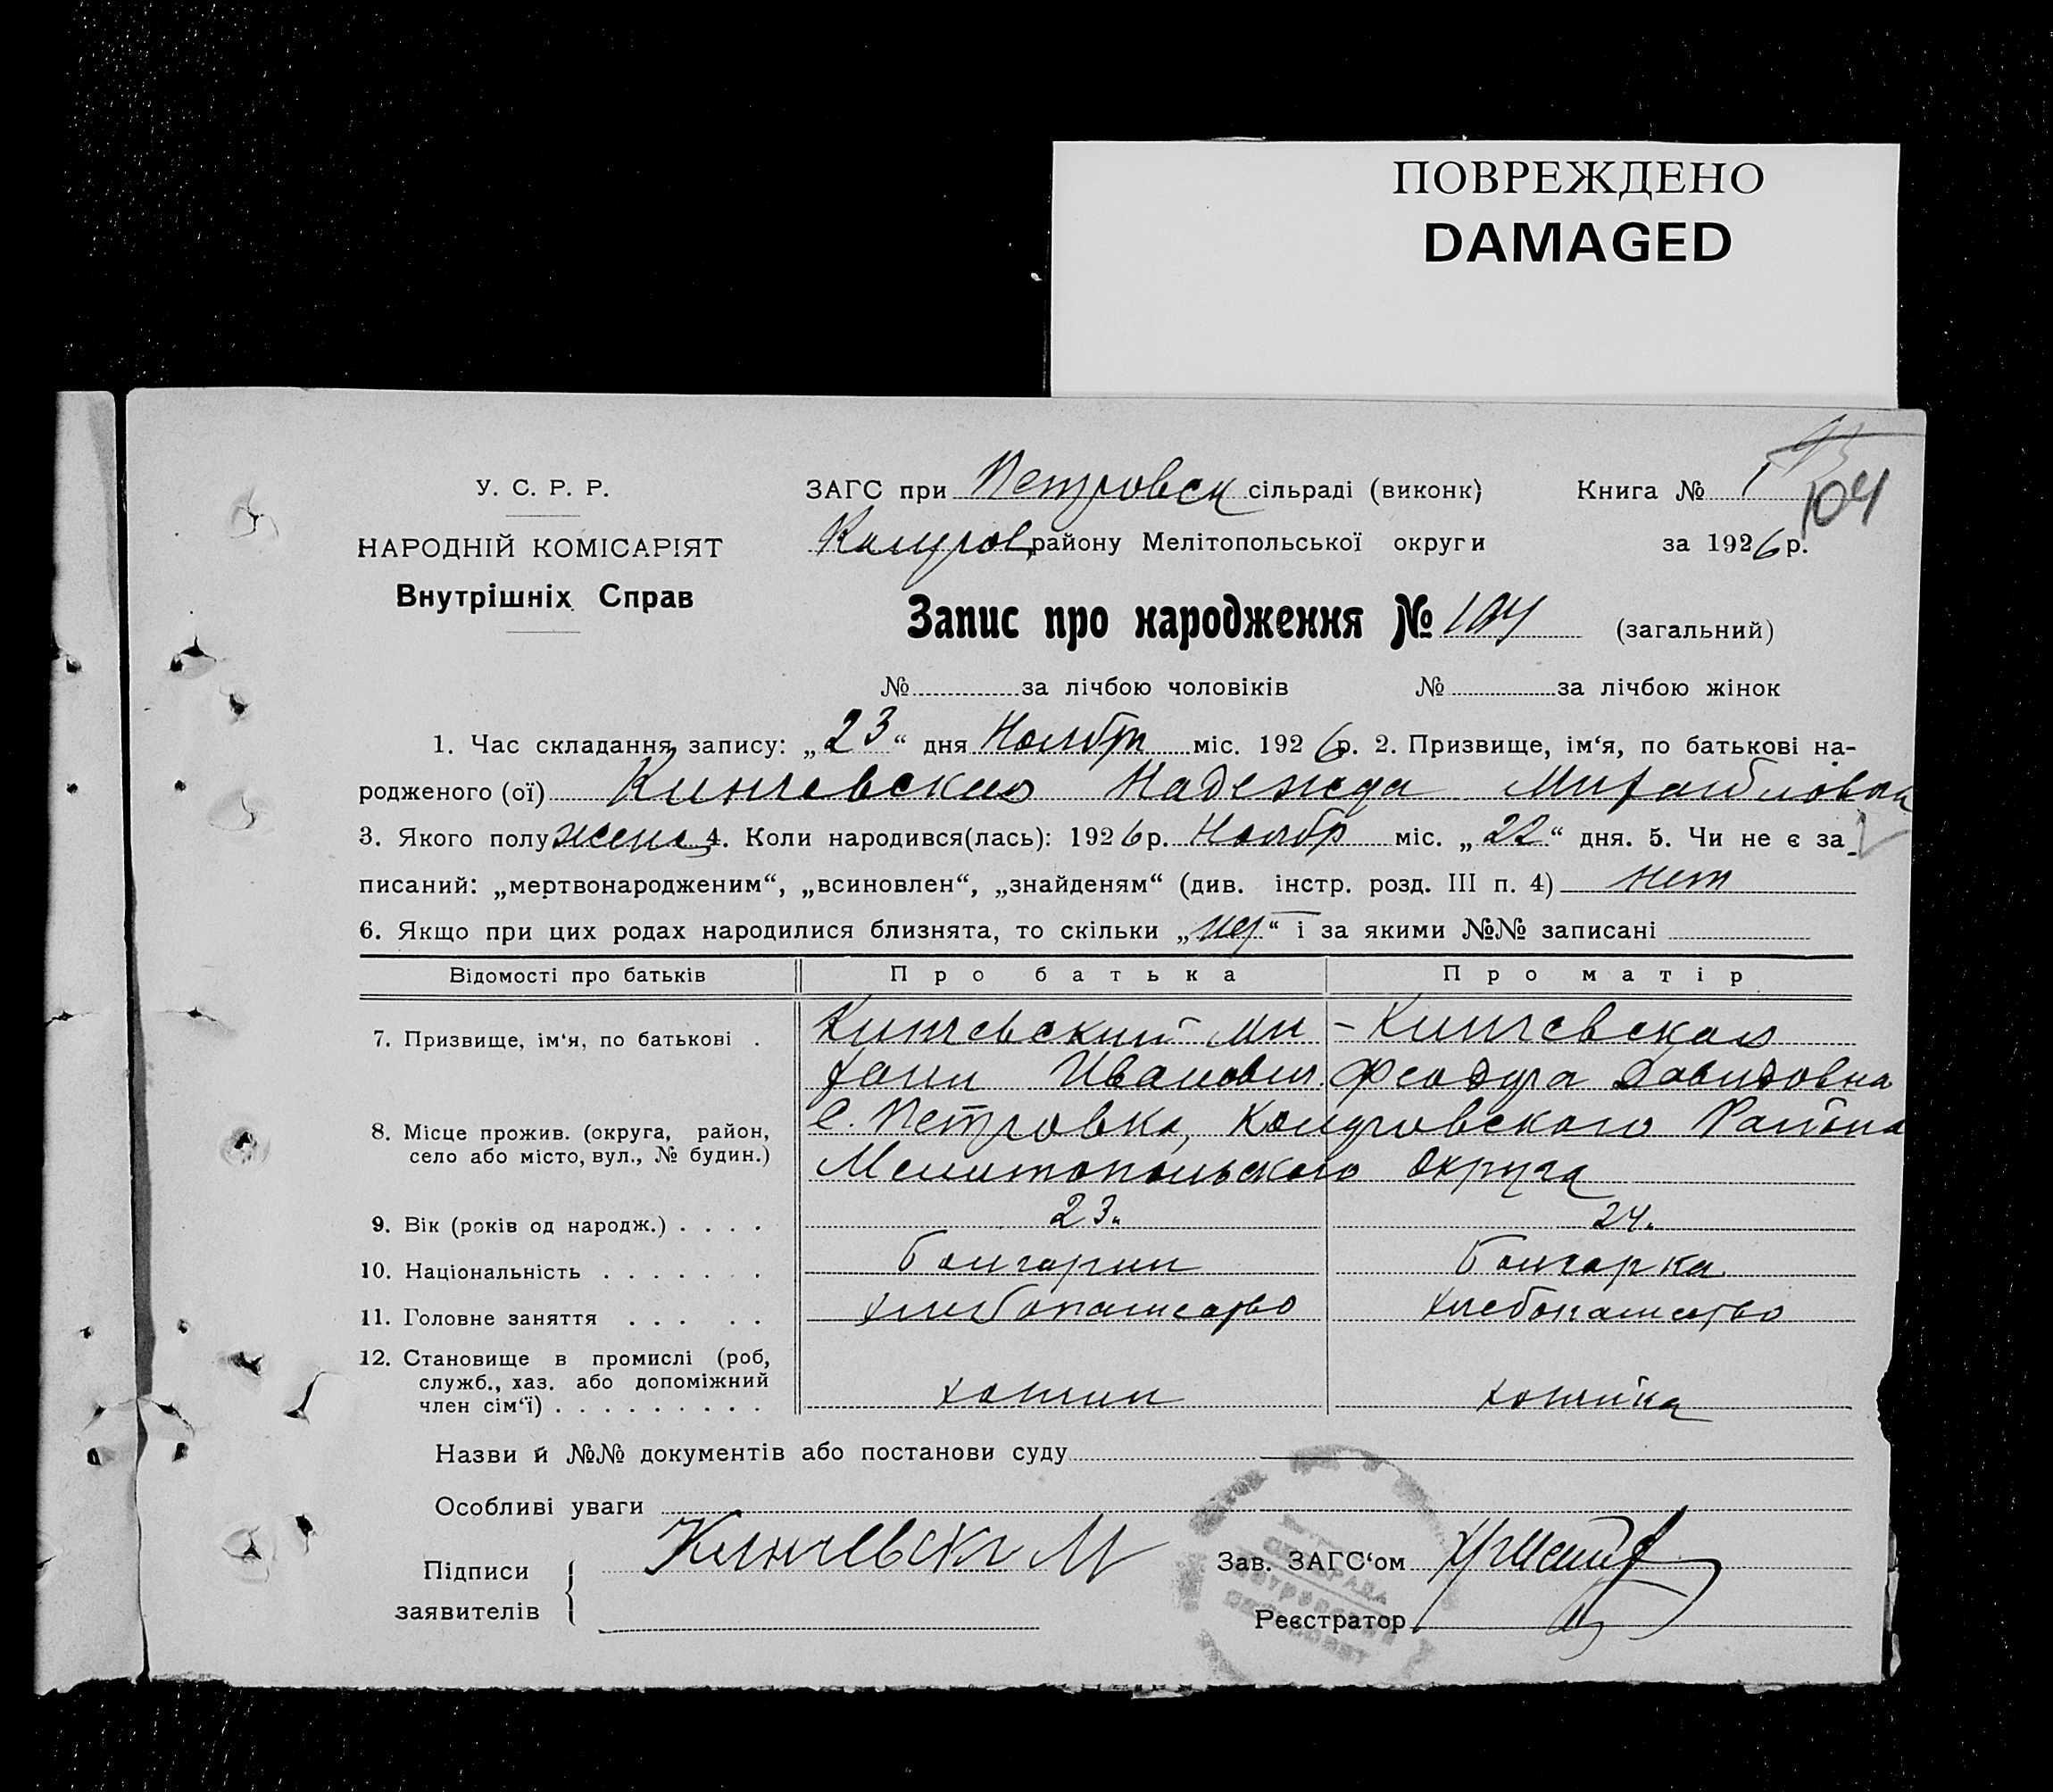 ПОВРЕЖДЕНО
DAMAGED
У. С. Р. Р.
НАРОДНІЙ КОМІСАРІЯТ
Внутрішніх Справ
ЗАГС при Петровск сільраді (виконк) Книга № 1
104
району Мелітопольської округи за 1926 р.
Запис про народження № 104 (загальний)
№ за лічбою чоловіків № за лічбою жінок
1. Час складання запису: „23“ дня Ноября міс. 1926 р. 2. Призвище, ім‘я, по батькові на-
родженого (ої) Кинчевская Надежда
3. Якого полу женс 4. Коли народився(лась): 1926 р. Ноябр міс. „22“ дня. 5. Чи не є за-
писаний: „мертвонародженим“, „всиновлен“, „знайденям“ (див. інстр. розд. III п. 4) нет
6. Якщо при цих родах народилися близнята, то скільки „нет“ і за якими №№ записані
Відомості про батьків Про батька Про матір
7. Призвище, ім‘я, по батькові . Кинчевский Ми- Кинчевская
хаил Иванович Феодора Давидовна
8. Місце прожив. (округа, район, село або місто, вул., № будин.) с. Петровка, Района
Мелитопольского округа
9. Вік (років од народж.) . . . . 23. 24.
10. Національність . . . . . . . болгарин болгарка
11. Головне заняття . . . . . хлебопашество хлебопашество
12. Становище в промислі (роб,
служб., хаз. або допоміжний
член сім‘ї) . . . . . . . . . хозяин хозяйка
Назви й №№ документів або постанови суду
Особливі уваги
Підписи
заявителів
Кинчевски М
Зав. ЗАГС‘ом
Реєстратор